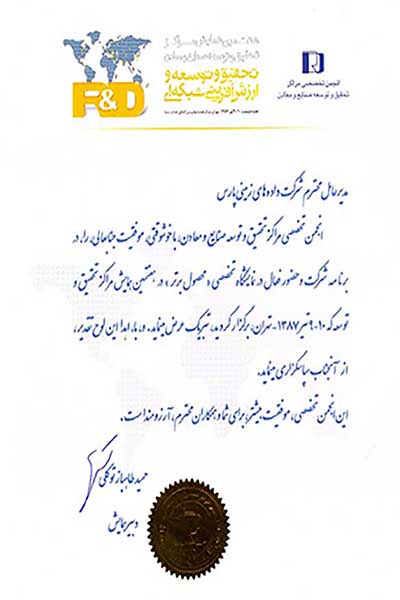 هفتمین همایش مراکز
تحقیق و توسعه صنایع و معادن
تحقیق و توسعه و
ارزش آفرینی شبکه‌ای
R&D
انجمن تخصصی مراکز
تحقیق و توسعه صنایع و معادن
مدیرعامل محترم شرکت داده های زمینی پارس
انجمن تخصصی مراکز تحقیق و توسعه صنایع و معادن، با خوشوقتی، موفقیت جنابعالی، را، در
برنامه شرکت و حضور فعال در نمایشگاه تخصصی «محصول برتر» در، هفتمین همایش مراکز تحقیق و
توسعه که ۱۰-۹ تیر ۱۳۸۷ - تهران، برگزار گردید، تبریک عرض مینماید. و، با، اهدا این لوح تقدیر،
از آنجناب سپاسگزاری مینماید.
این انجمن تخصصی، موفقیت بیشتر، برای شما و همکاران محترم، آرزومند است.
حمید طاهباز توکلی
دبیر همایش